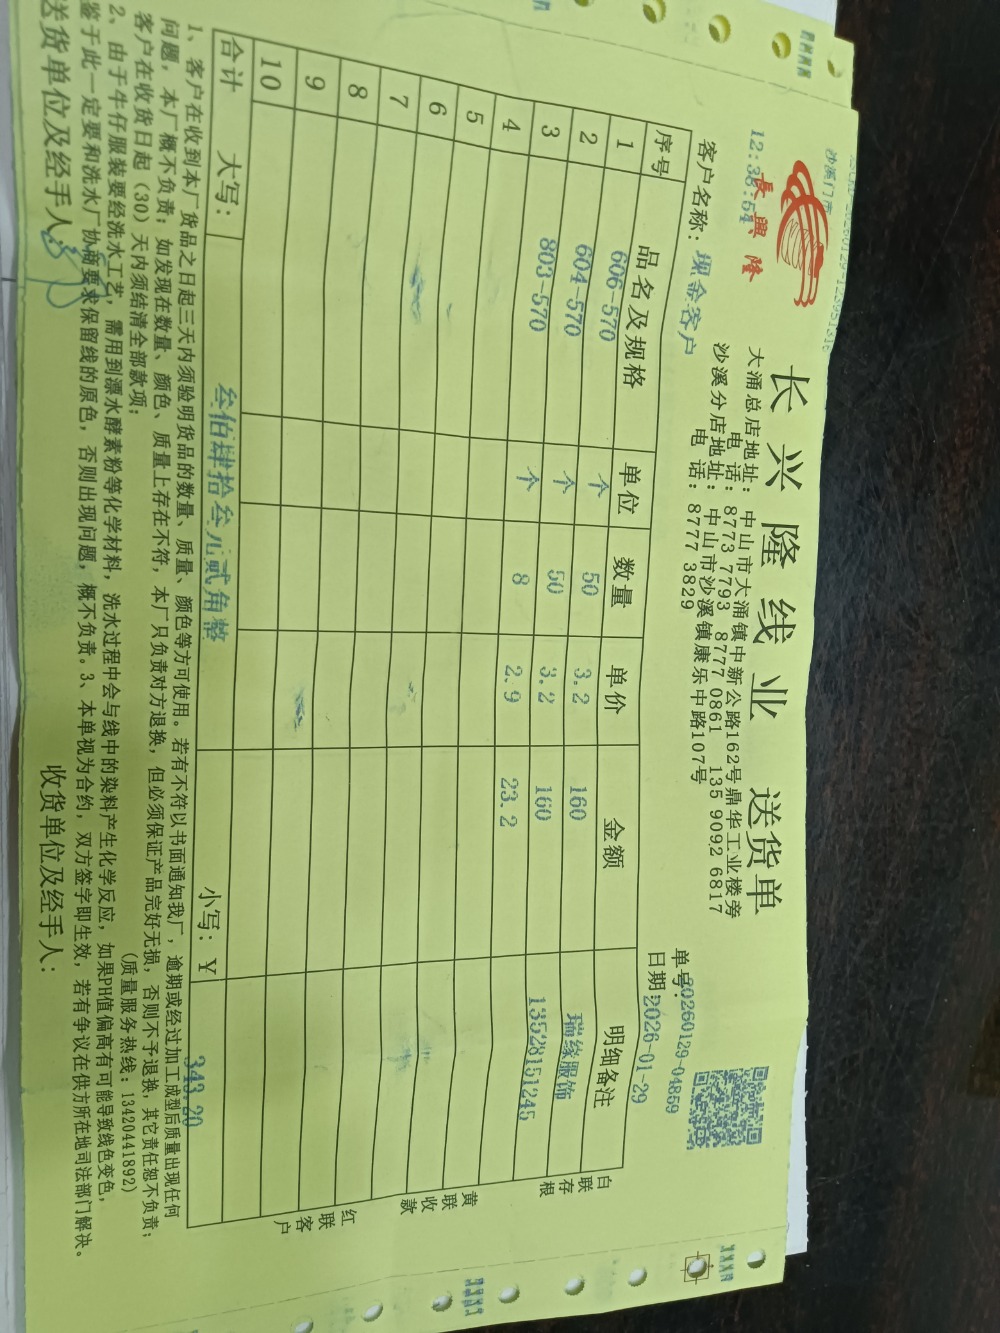 沙溪门市
12:38:54
長興隆
长兴隆线业 送货单
大涌总店地址: 中山市大涌镇中新公路162号鼎华工业楼旁
电 话: 8773 7793 8777 0861 135 9092 6817
沙溪分店地址: 中山市沙溪镇康乐中路107号
电 话: 8777 3829
单号:20260129-04859
客户名称: 现金客户
日期:2026-01-29
序号 品名及规格 单位 数量 单价 金额 明细备注
1 606-570 个 50 3.2 160 瑞缘服饰
2 604-570 个 50 3.2 160 13528151245
3 803-570 个 8 2.9 23.2
4
5
6
7
8
9
10
合计 大写: 叁佰肆拾叁元贰角整 小写: ¥ 343.20
白联存根
黄联收款
红联客户
1、客户在收到本厂货品之日起三天内须验明货品的数量、质量、颜色等方可使用。若有不符以书面通知我厂,逾期或经过加工成型后质量出现任何
问题,本厂概不负责;如发现在数量、颜色、质量上存在不符,本厂只负责对方退换,但必须保证产品完好无损,否则不予退换,其它责任恕不负责;
客户在收货日起(30)天内须结清全部款项;
(质量服务热线: 13420441892)
2、由于牛仔服装要经洗水工艺,需用到漂水酵素粉等化学材料,洗水过程中会与线中的染料产生化学反应,如果PH值偏高有可能导致线色变色,
鉴于此一定要和洗水厂协商要求保留线的原色,否则出现问题,概不负责。3、本单视为合约,双方签字即生效,若有争议在供方所在地司法部门解决。
送货单位及经手人: 收货单位及经手人: